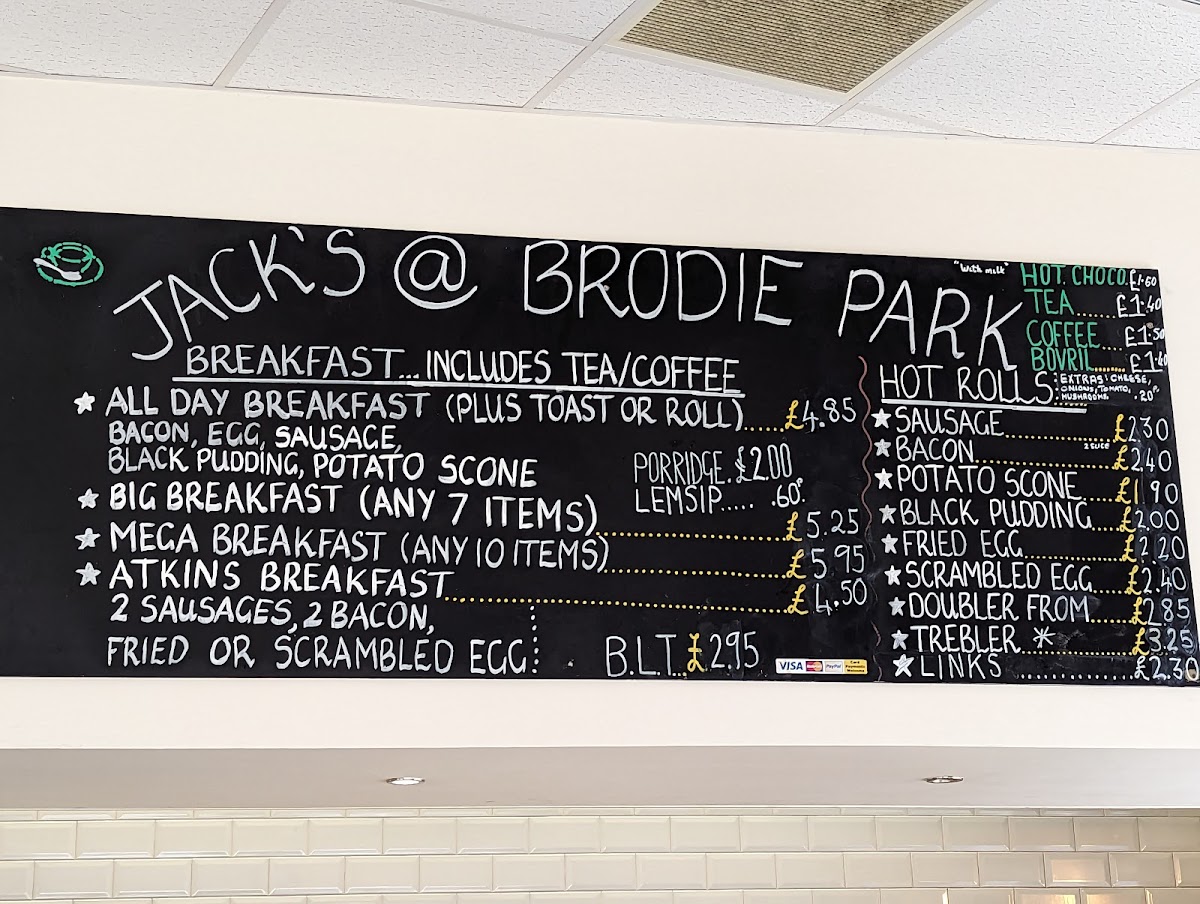 JACK'S @ BRODIE PARK
BREAKFAST... INCLUDES TEA/COFFEE
ALL DAY BREAKFAST (PLUS TOAST OR ROLL)......£4.85
BACON, EGG, SAUSAGE,
BLACK PUDDING, POTATO SCONE
PORRIDGE. £2.00
LEMSIP..... .60P.
BIG BREAKFAST (ANY 7 ITEMS)..........£5.25
MEGA BREAKFAST (ANY 10 ITEMS)..........£5.95
ATKINS BREAKFAST..........£4.50
2 SAUSAGES, 2 BACON,
FRIED OR SCRAMBLED EGG
B.L.T...£2.95
VISA PayPal
"With milk" HOT. CHOCO. £1.60
TEA......£1.40
COFFEE....£1.50
BOVRIL......£1.60
HOT ROLLS: EXTRAS: CHEESE,
ONIONS, TOMATO,
MUSHROOMS .20P
SAUSAGE..........£2.30
BACON 2 SLICE..........£2.40
POTATO SCONE....£1.90
BLACK PUDDING...£2.00
FRIED EGG..........£2.20
SCRAMBLED EGG...£2.40
DOUBLER FROM....£2.85
TREBLER *..........£3.25
LINKS..........£2.30